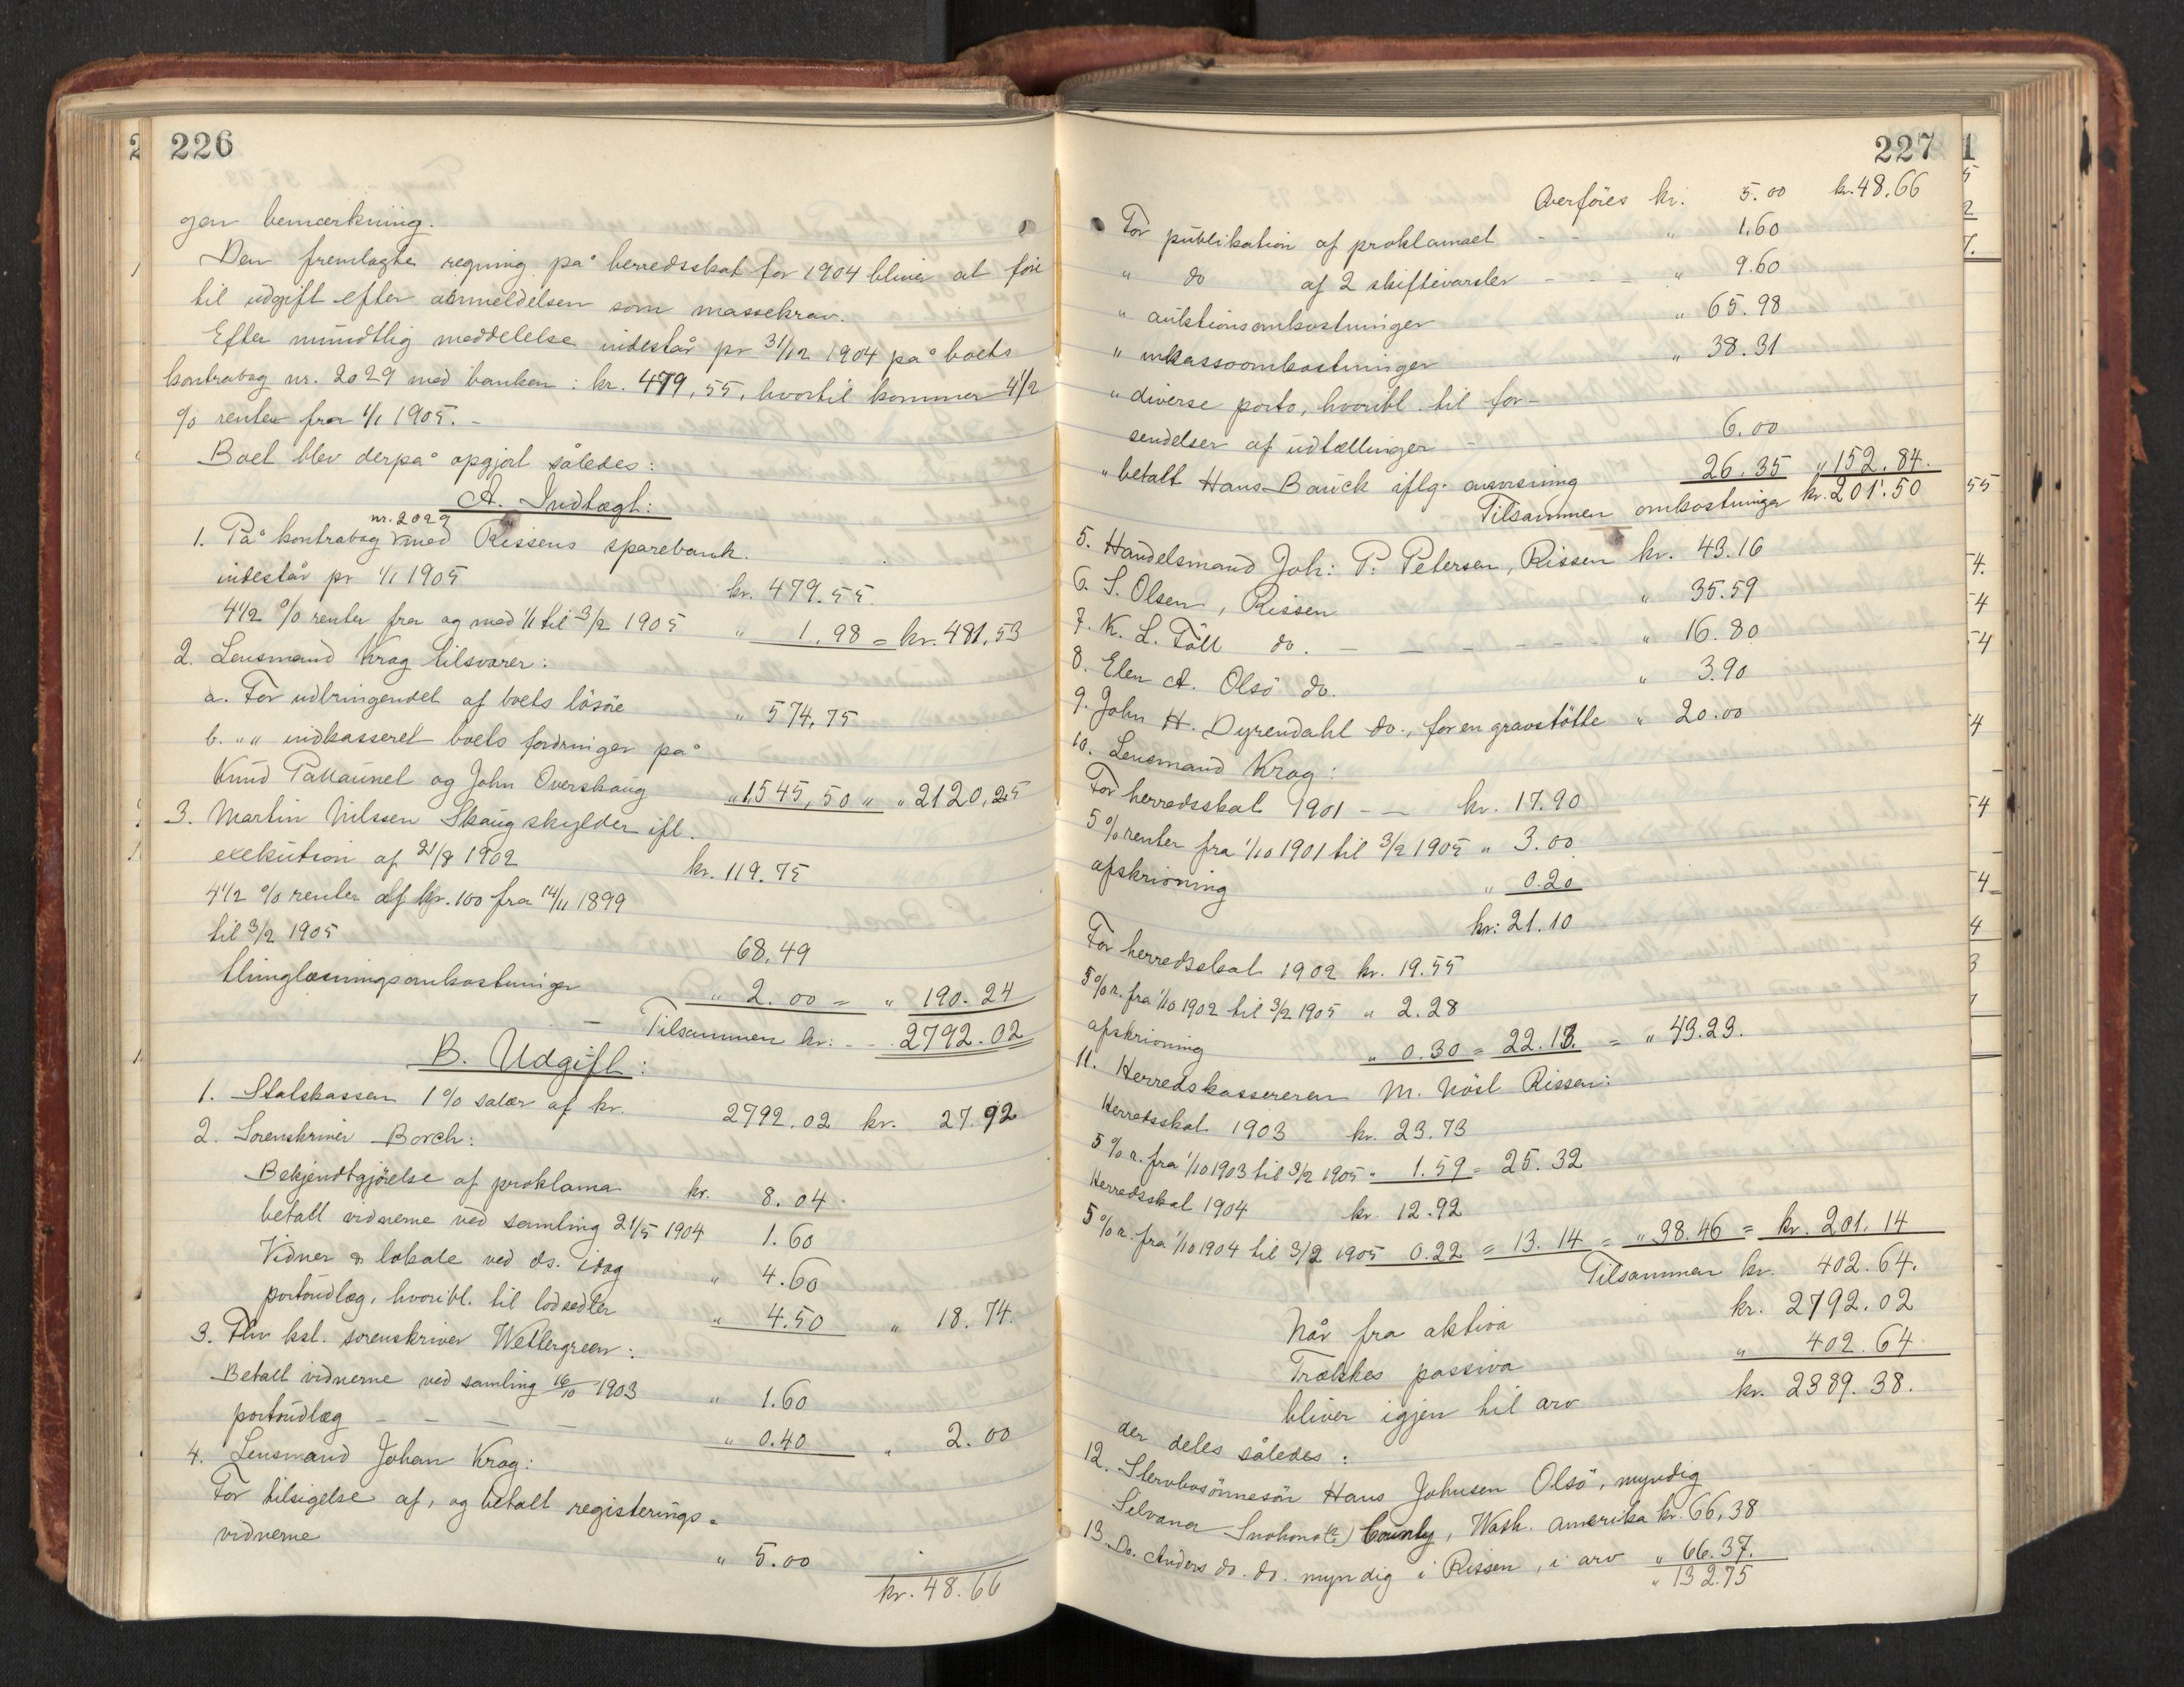 226
gen bemærkning.
Den fremlagte regning på herredsskat for 1904 bliver at före
til udgift efter anmeldelsen som massekrav.
Efter mundtlig meddelelse indestår pr 31/12 1904 på boets
kontrabog nr. 2029 med banken: kr. 479,55, hvortil kommer 4 1/2
% renter fra 1/1 1905. -
Boet blev derpå opgjort således:
A. Indtægt:
1. På kontrabog nr. 2029 med Rissens sparebank
indestår pr 1/1 1905 kr. 479.55.
4 1/2 % renter fra og med 1/1 til 3/2 1905 " 1.98 = kr. 481,53
2. Lensmand Krog tilsvarer:
a. For udbringendet af boets lösöre " 574,75
b. " " indkasseret boets fordringer på
Knud Pallaunet og John Overskaug " 1,545,50 " " 2120,25
3. Martin Nilssen Skaug skylder ifl.
exekution af 21/8 1902 kr. 119.75
4 1/2 % renter af kr. 100 fra 14/11 1899
til 3/2 1905 68,49
thinglæsningsomkostninger " 2.00 = " 190.24
Tilsammen kr: - - 2792.02
B. Udgift:
1. Statskassen 1% salær af kr. 2792.02 kr. 27.92
2. Sorenskriver Borch:
Bekjendtgjörelse af proklama kr. 8.04
betalt vidnerne ved samling 21/5 1904 1.60
Vidner & lokale ved ds. idag " 4.60
portoudlæg, hvoribl. til lodsedler " 4.50 " 18.74.
3. Fhv kst. sorenskriver Wettergreen:
Betalt vidnerne ved samling 16/10 1903 " 1.60
portoudlæg - - - - " 0.40 " 2.00
4. Lensmand Johan Krog:
For tilsigelse af, og betalt registerings-
vidnerne " 5.00
kr. 48.66
227
Overföres kr. 5.00 kr. 48.66
For publikation af proklamaet - - " 1.60
" do af 2 skiftevarsler - - - " 9.60
" auktionsomkostninger " 65.98
" inkassoomkostninger " 38.31
" diverse porto, hvoribl. til for-
sendelser af udtællinger - 6.00
" betalt Hans Bauck iflg. anvisning 26.35 " 152.84.
Tilsammen omkostninger kr. 201.50
5. Handelsmand Joh: P. Petersen, Rissen kr. 43.16
6. S. Olsen, Rissen " 35.59
7. K. L. Töll do. - - - - - " 16.80
8. Elen A. Olsö do. " 3.90
9. John H. Dyrendahl do., for en gravstötte " 20.00
10. Lensmand Krog:
For herredsskat 1901 - - kr. 17.90
5 % renter fra 1/10 1901 til 3/2 1905 " 3.00
afskrivning " 0.20
kr: 21.10
For herredsskat 1902 kr. 19.55
5 % r. fra 1/10 1902 til 3/2 1905 " 2.28
afskrivning " 0.30 = 22.13. = " 43.23.
11. Herredskassereren M. Nöst Rissen:
Herredsskat 1903 kr. 23.73
5 % r. fra 1/10 1903 til 3/2 1905 " 1.59 = 25.32
Herredsskat 1904 kr. 12.92
5 % r. fra 1/10 1904 til 3/2 1905 0.22 = 13.14 = " 38.46 = kr. 201.14
Tilsammen kr. 402.64.
Når fra aktiva kr. 2792.02
Trækkes passiva " 402.64
bliver igjen til arv kr. 2389.38.
der deles således:
12. Stervbosönnesön Hans Johnsen Olsö, myndig
Silvana Snohomo(?) County, Wash. Amerika kr. 66,38
13. Do. Anders do. do. myndig i Rissen, i arv " 66.37.
" 132.75